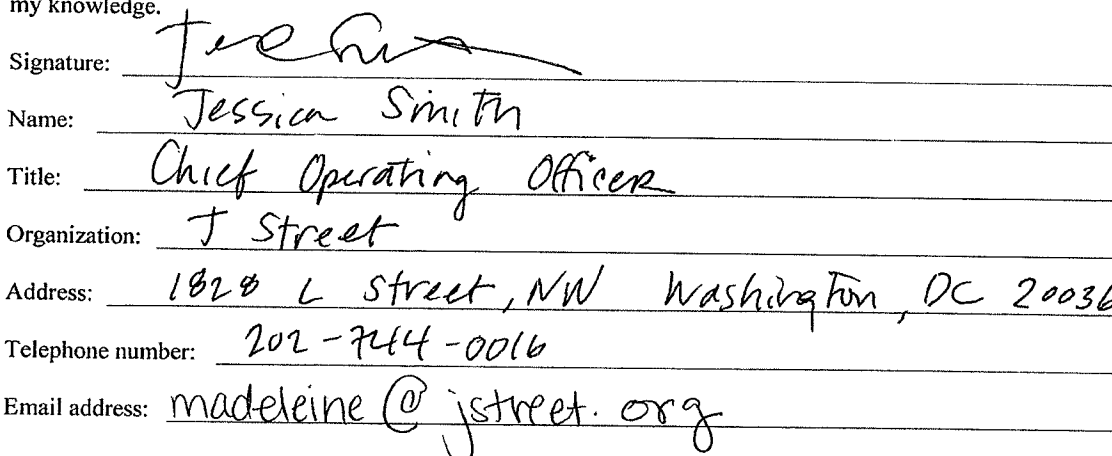 my knowledge.
Signature:
Name: Jessica Smith
Title: Chief Operating Officer
Organization: J Street
Address: 1828 L Street, NW Washington, DC 20036
Telephone number: 202-744-0016
Email address: madeleine@jstreet.org